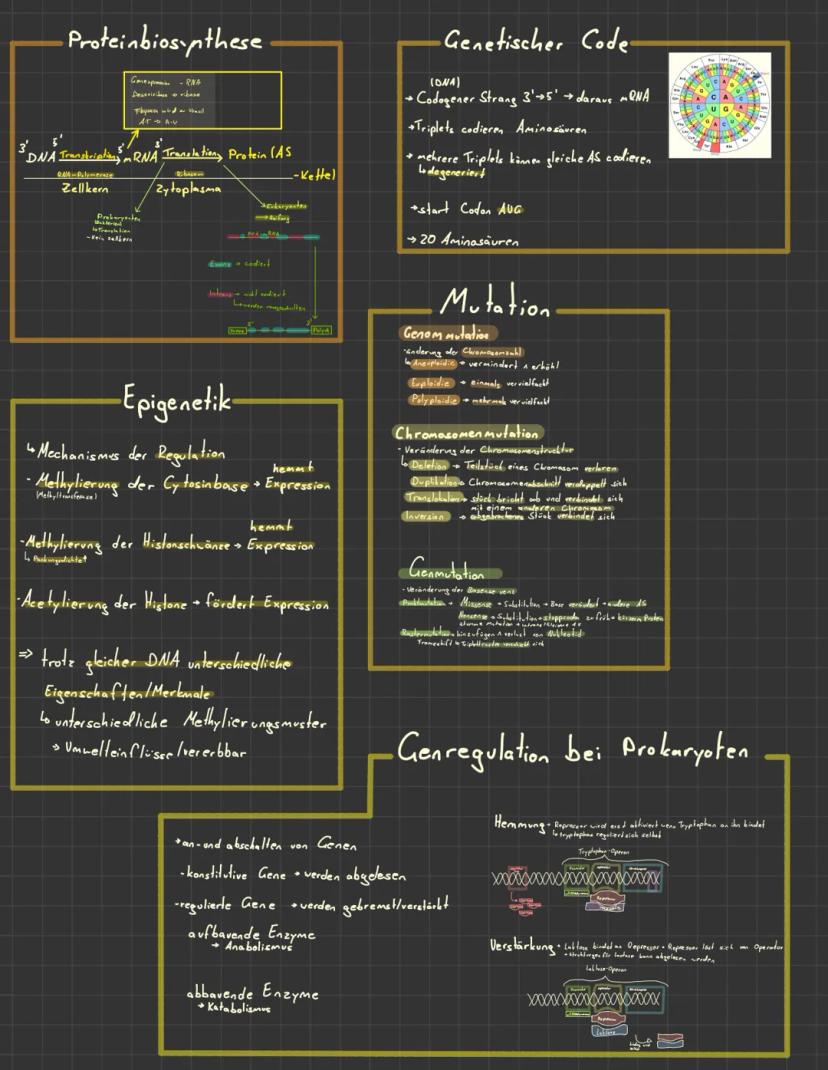 Proteinbiosynthese
Genexpression - RNA
Desoxiribose → ribose
Thymin wird zu Uracil
AT → A-U
3' 5' 5' 3'
DNA Transkription mRNA Translation Protein (AS
RNA-Polymerase Ribosom -Kette)
Zellkern Zytoplasma
Prokaryoten
Bakterien
↳ Translation
- Kein Zellkern
Eukaryonten
→ Reifung
prä RNA
Exons → codiert
Introns → nicht codiert
↳ werden rausgeschnitten
5' 3'
Genetischer Code
(DNA)
→ Codogener Strang 3'→5' → daraus mRNA
→ Triplets codieren Aminosäuren
→ mehrere Triplets können gleiche AS codieren
↳ degeneriert
→ start Codon AUG
→ 20 Aminosäuren
C A
U G
Mutation
Genommutation
- änderung der Chromosomzahl
↳ Aneuploidie → vermindert ∧ erhöht
Euploidie → einmals vervielfacht
Polyploidie → mehrmals vervielfacht
Chromosomenmutation
- Veränderung der Chromosomenstruktur
↳ Deletion → Teilstück eines Chromosom verloren
Duplikation → Chromosomenabschnitt verdoppelt sich
Translokation → stück bricht ab und verbindet sich
mit einem anderen Chromosom
Inversion → abgebrochenes Stück verbindet sich
Genmutation
- Veränderung der Basense
Punktmutation → Missense → Substitution → Base verändert → andere AS
Nonsense → Substitution → stoppcodon zu früh → kürzeres Protein
stumme Mutation →
Rastermutation → hinzufügen ∧ verlust von Nukleotid
Frameshift →
Epigenetik
↳ Mechanismus der Regulation
hemmt
- Methylierung der Cytosinbase → Expression
(Methyltransferase)
hemmt
- Methylierung der Histonschwänze → Expression
↳ Packungsdichte↑
- Acetylierung der Histone → fördert Expression
⇒ trotz gleicher DNA unterschiedliche
Eigenschaften/Merkmale
↳ unterschiedliche Methylierungsmuster
→ Umwelteinflüsse/vererbbar
Genregulation bei Prokaryoten
→ an- und abschalten von Genen
- konstitutive Gene → werden abgelesen
- regulierte Gene → werden gebremst/verstärkt
aufbauende Enzyme
→ Anabolismus
abbauende Enzyme
→ Katabolismus
Hemmung → Repressor wird erst aktiviert wenn Tryptophan an ihn bindet
↳ tryptophan reguliert sich selbst
Tryptophan-Operon
Promotor Operator
Repressor
Verstärkung → Laktose bindet an Repressor → Repressor löst sich von Operator
→ Strukturgene für lactose kann abgelesen werden
Laktose-Operon
Promotor Operator
Repressor
Laktose